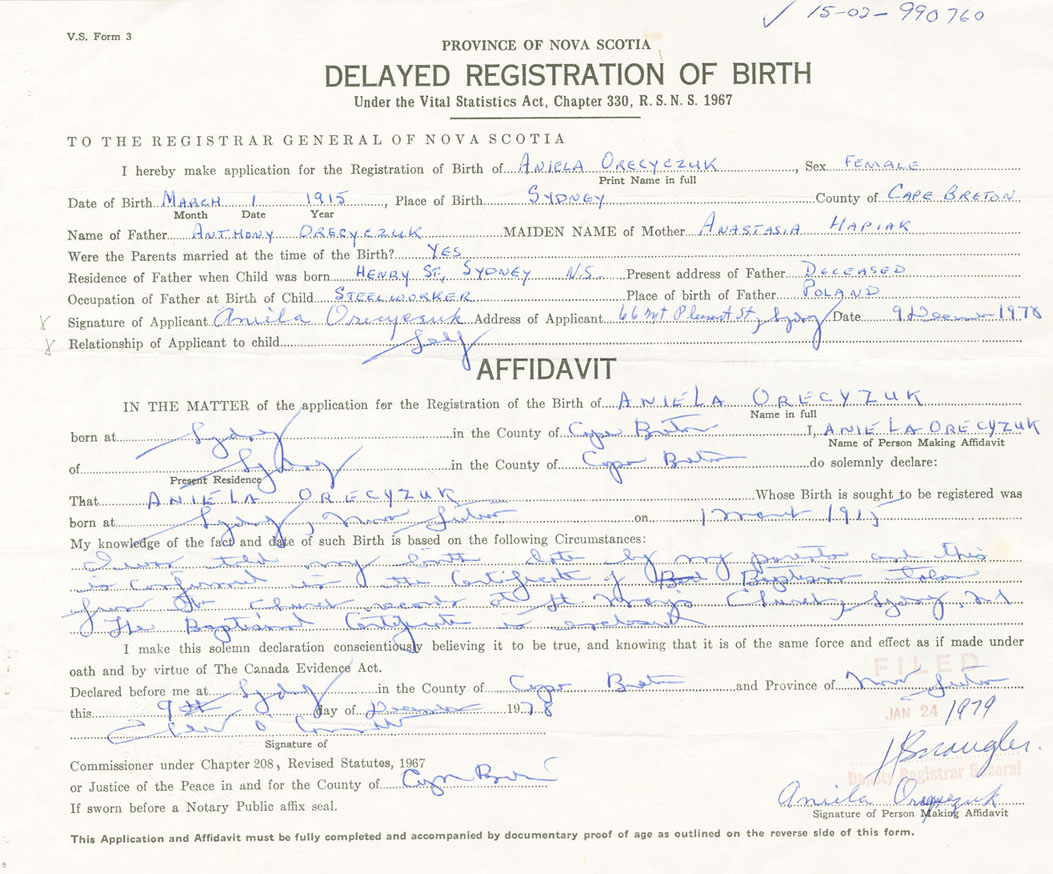 ✓ 15-02-990760
V.S. Form 3
PROVINCE OF NOVA SCOTIA
DELAYED REGISTRATION OF BIRTH
Under the Vital Statistics Act, Chapter 330, R.S.N.S. 1967
TO THE REGISTRAR GENERAL OF NOVA SCOTIA
I hereby make application for the Registration of Birth of ANIELA ORECYCZUK, Sex FEMALE
Print Name in full
Date of Birth MARCH 1 1915, Place of Birth SYDNEY County of CAPE BRETON
Month Date Year
Name of Father ANTHONY ORECYCZUK MAIDEN NAME of Mother ANASTASIA HAPIAK
Were the Parents married at the time of the Birth? YES
Residence of Father when Child was born HENRY ST, SYDNEY N.S. Present address of Father DECEASED
Occupation of Father at Birth of Child STEELWORKER Place of birth of Father POLAND
Signature of Applicant Aniela Orecyczuk Address of Applicant 66 Mt Pleasant St, Sydney Date 9 December 1978
Relationship of Applicant to child Self
AFFIDAVIT
IN THE MATTER of the application for the Registration of the Birth of ANIELA ORECYZUK
Name in full
born at Sydney in the County of Cape Breton I, ANIELA ORECYZUK
Name of Person Making Affidavit
of Sydney in the County of Cape Breton do solemnly declare:
Present Residence
That ANIELA ORECYZUK Whose Birth is sought to be registered was
born at Sydney, Nova Scotia on 1 March 1915
My knowledge of the fact and date of such Birth is based on the following Circumstances:
I was told my birth date by my parents and this
is confirmed in the Certificate of Baptism taken
from the church records at St Mary's Church, Sydney, NS
The Baptismal Certificate is enclosed
I make this solemn declaration conscientiously believing it to be true, and knowing that it is of the same force and effect as if made under
oath and by virtue of The Canada Evidence Act.
FILED
Declared before me at Sydney in the County of Cape Breton and Province of Nova Scotia
this 9th day of December 1978
JAN 24 1979
Signature of
Commissioner under Chapter 208, Revised Statutes, 1967
or Justice of the Peace in and for the County of Cape Breton
Deputy Registrar General
If sworn before a Notary Public affix seal.
Aniela Orecyczuk
Signature of Person Making Affidavit
This Application and Affidavit must be fully completed and accompanied by documentary proof of age as outlined on the reverse side of this form.